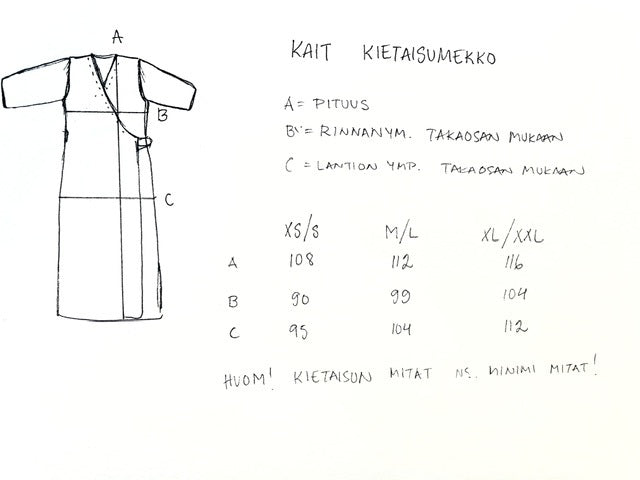 A
KAIT KIETAISUMEKKO
A = PITUUS
B = RINNANYM. TAKAOSAN MUKAAN
B
C = LANTION YMP. TAKAOSAN MUKAAN
C
XS/S M/L XL/XXL
A 108 112 116
B 90 99 104
C 95 104 112
HUOM! KIETAISUN MITAT NS. MINIMI MITAT!